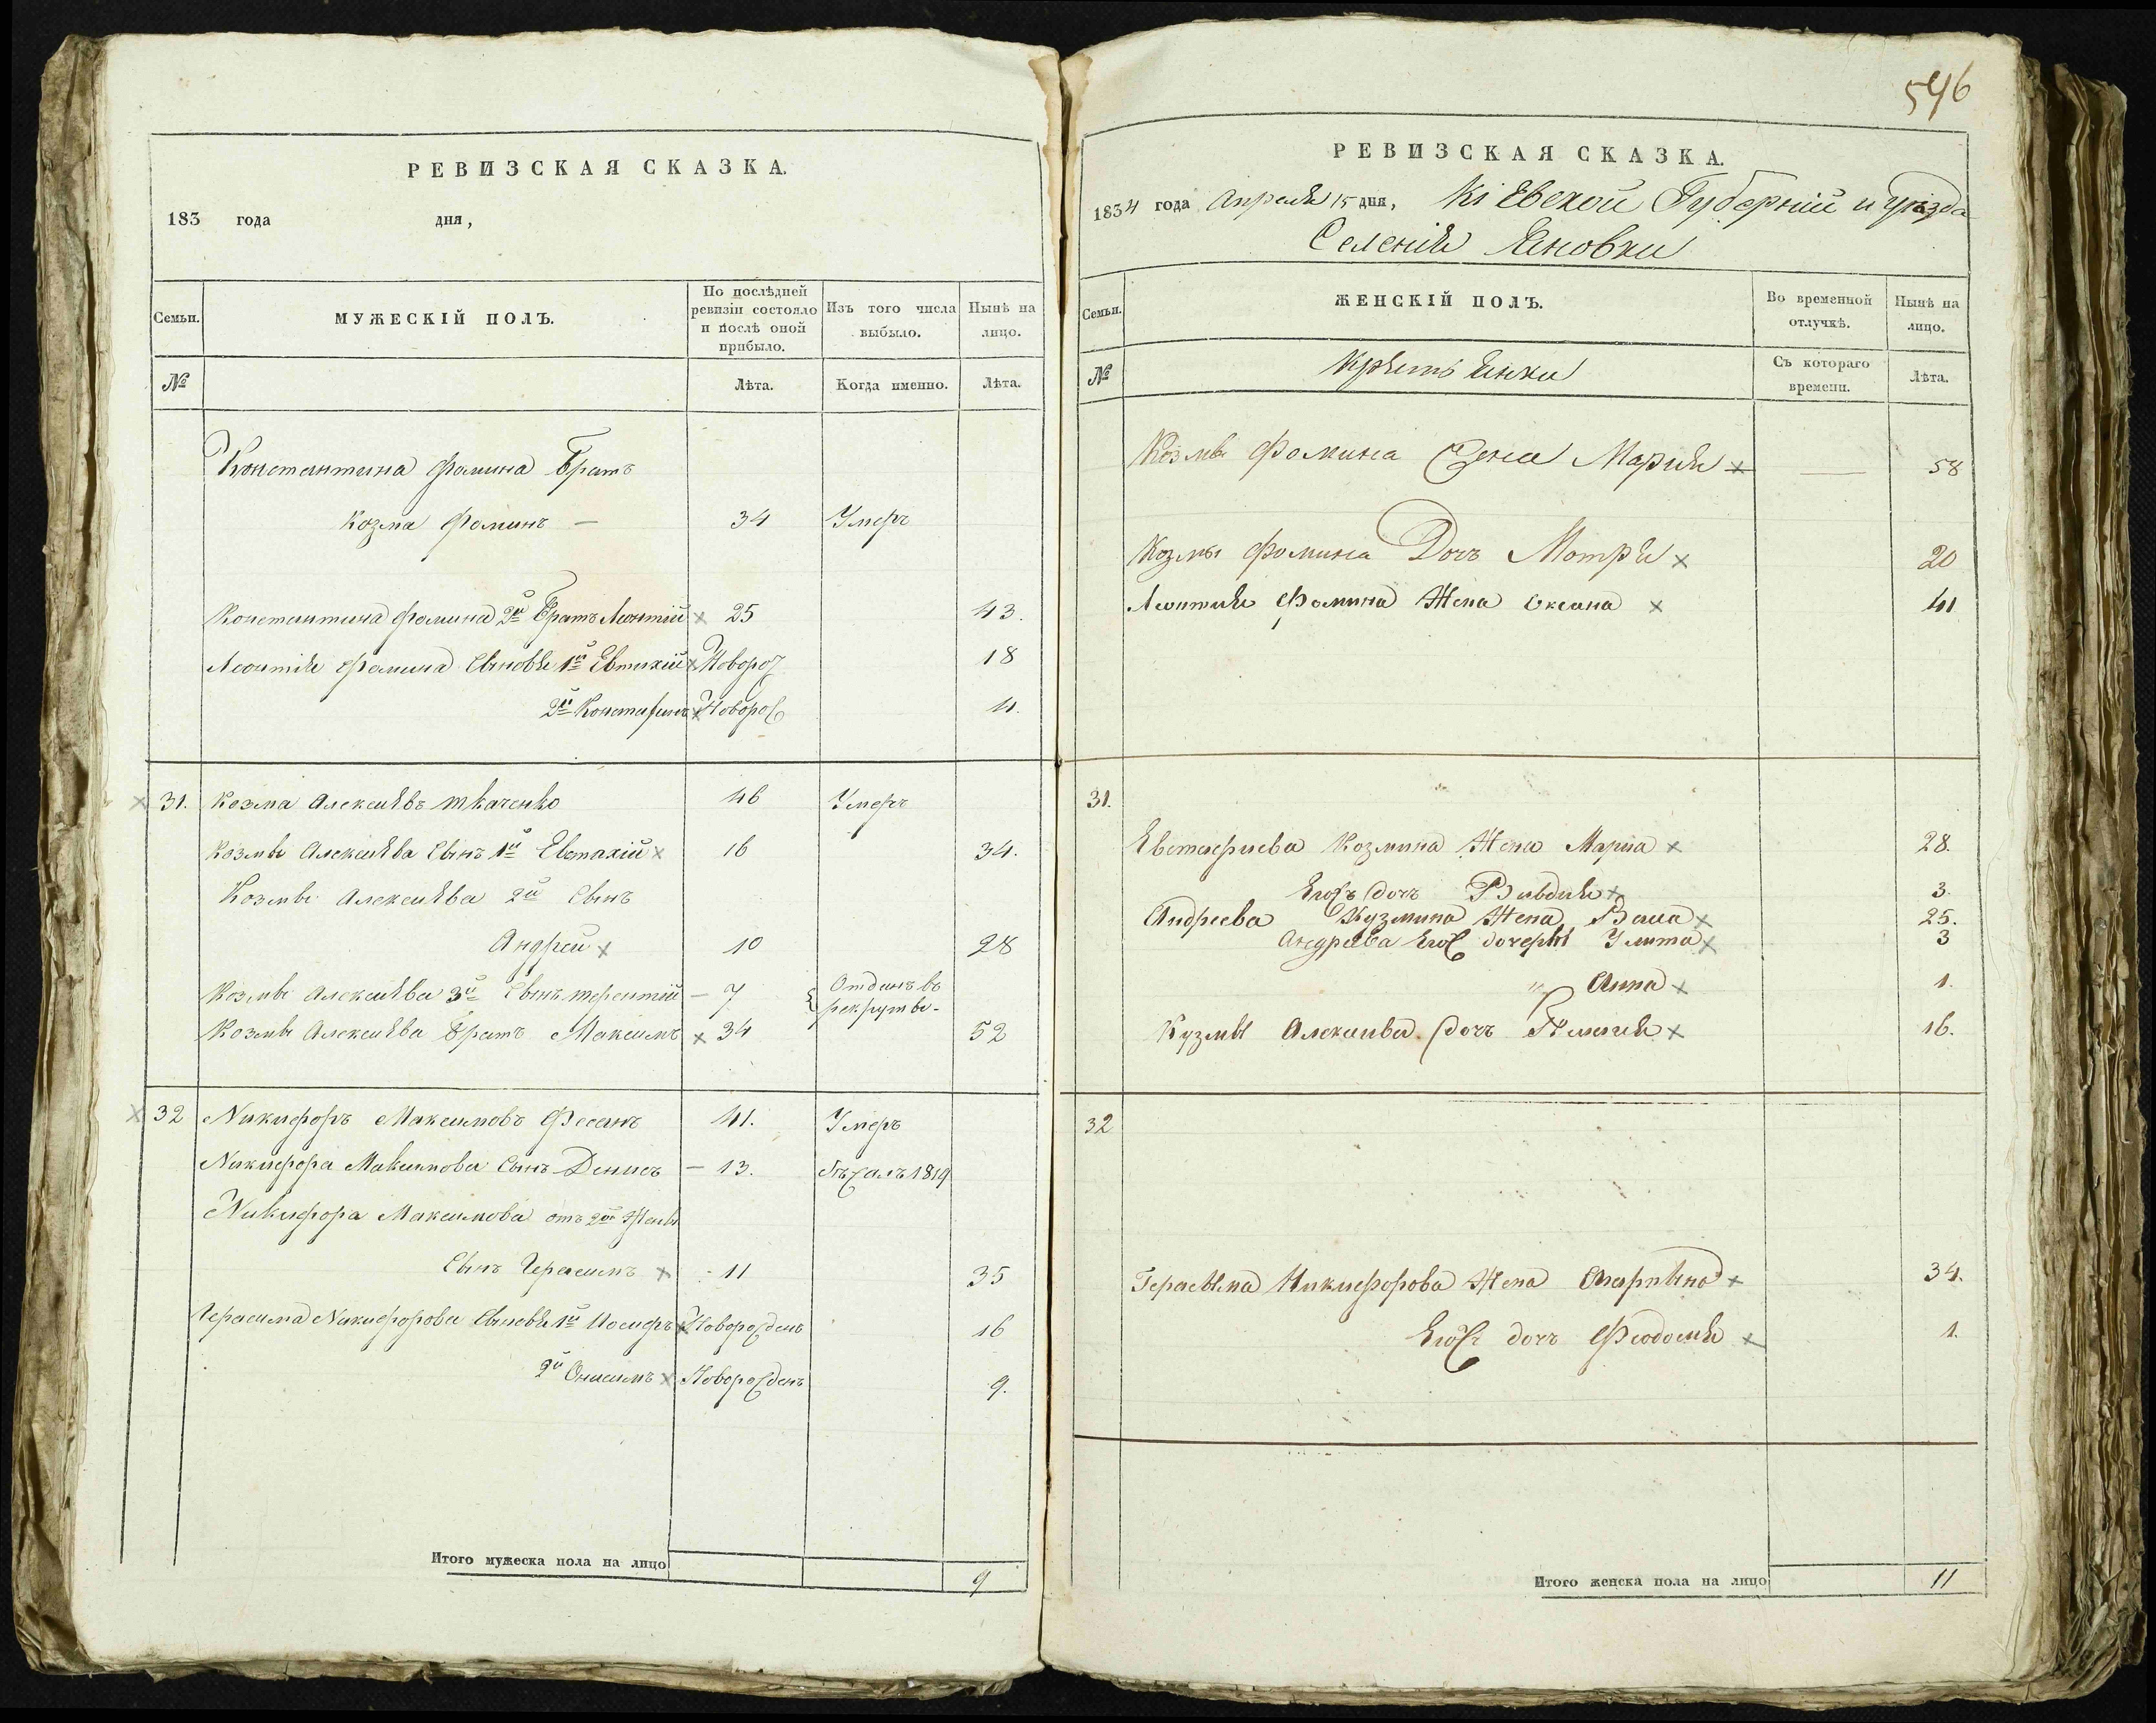 РЕВИЗСКАЯ СКАЗКА.
183 года дня,
Семьи.
МУЖЕСКІЙ ПОЛЪ.
По послѣдней ревизіи состояло и послѣ оной прибыло.
Изъ того числа выбыло.
Нынѣ на лицо.
№
Лѣта.
Когда именно.
Лѣта.
Константина Фомина Братъ
Козма Фоминъ — 34 Умеръ
Константина Фомина 2й Братъ Леонтій × 25 43.
Леонтія Фомина Сыновья 1й Евтихій × Новорож 18
2й Константинъ × Новорож 11.
× 31. Козма Алексѣевъ Ткаченко 46 Умеръ
Козмы Алексѣева Сынъ 1й Евтахій × 16 34.
Козмы Алексѣева 2й Сынъ
Андрей × 10 28
Козмы Алексѣева 3й Сынъ Терентій — 7 Отданъ въ рекруты -
Козмы Алексѣева Братъ Максимъ × 34 52
× 32 Никифоръ Максимовъ 41. Умеръ
Никифора Максимова Сынъ Денисъ — 13. 1819
Никифора Максимова отъ 2ой Жены
Сынъ Герасимъ × 11 35
Герасима Никифорова Сыновья 1й Иосифъ × Новорожденъ 16
2й Онисимъ × Новорожденъ 9.
Итого мужеска пола на лицо 9
546
РЕВИЗСКАЯ СКАЗКА.
1834 года Апреля 15 дня, Кіевской Губерніи и уѣзда
Селенія Яновки
Семьи.
ЖЕНСКІЙ ПОЛЪ.
Во временной отлучкѣ.
Нынѣ на лицо.
№
Крѣстьянки
Съ котораго времени.
Лѣта.
Козмы Фомина Жена Марія × — 58
Козмы Фомина Дочь Мотря × 20
Леонтія Фомина Жена Оксана × 41
31.
Козмина Жена Мариа × 28.
Егожъ дочь Вивдия × 3.
Андреева Кузмина Жена × 25.
Андреева Егож дочеры Улита × 3
" Анна × 1.
Кузмы Алексѣева дочь × 16.
32
Герасыма Никифорова Жена × 34.
Егожъ дочь Феодосія × 1.
Итого женска пола на лицо 11